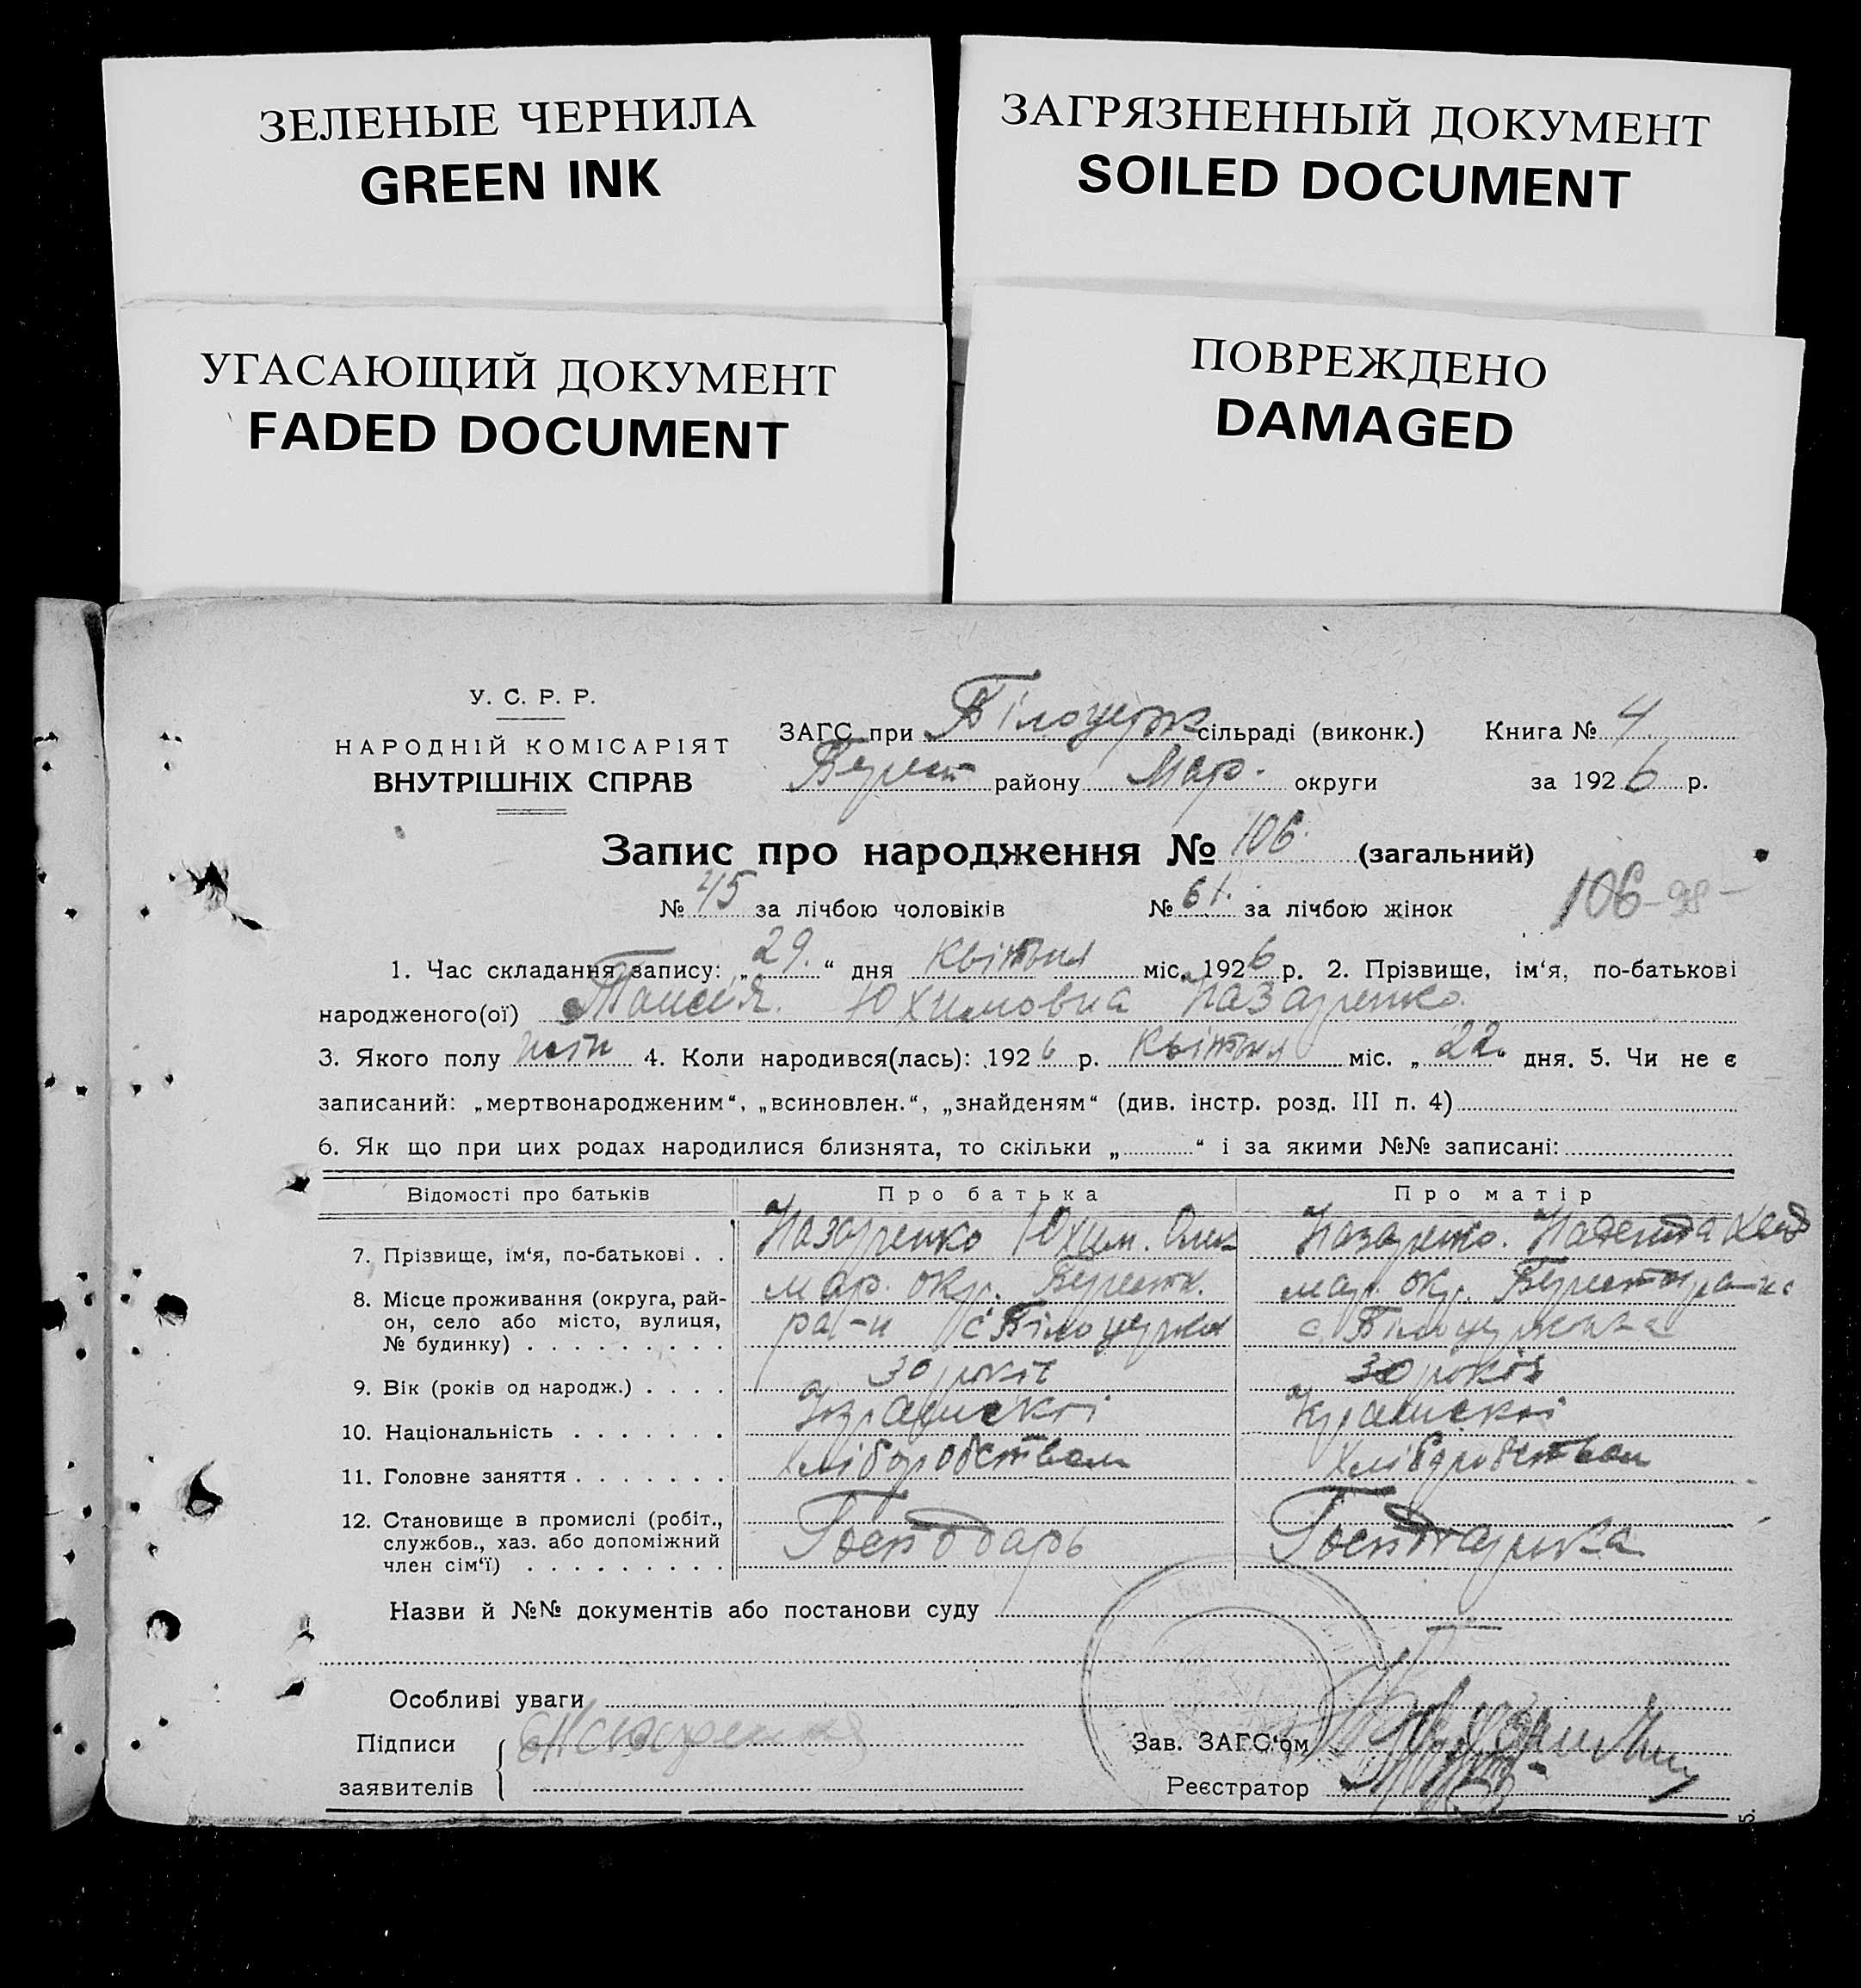 ЗЕЛЕНЫЕ ЧЕРНИЛА
GREEN INK
ЗАГРЯЗНЕННЫЙ ДОКУМЕНТ
SOILED DOCUMENT
УГАСАЮЩИЙ ДОКУМЕНТ
FADED DOCUMENT
ПОВРЕЖДЕНО
DAMAGED
У. С. Р. Р.
НАРОДНІЙ КОМІСАРІЯТ
ВНУТРІШНІХ СПРАВ
ЗАГС при Білоцерк сільраді (виконк.) Книга № 4
Берест району Мар. округи за 1926 р.
Запис про народження № 106. (загальний)
№ 45 за лічбою чоловіків № 61. за лічбою жінок 106-98-
1. Час складання запису: „29.“ дня квітня міс. 1926 р. 2. Прізвище, ім‘я, по-батькові
народженого(ої) Таисія. Юхимовна Назаренко.
3. Якого полу жін 4. Коли народився(лась): 1926 р. квітня міс. „22„ дня. 5. Чи не є
записаний: „мертвонародженим“, „всиновлен.“, „знайденям“ (див. інстр. розд. III п. 4)
6. Як що при цих родах народилися близнята, то скільки „ “ і за якими №№ записані:
Відомості про батьків Про батька Про матір
7. Прізвище, ім‘я, по-батькові . . Назаренко Юхим. Назаренко.
8. Місце проживання (округа, рай- мар. окр. Берестк. мар. окр.
он, село або місто, вулиця, ра-н с Білоцерковка с Білоцерковка
№ будинку)
9. Вік (років од народж.) . . . . 30 років 30 років
10. Національність
11. Головне заняття Хліборобством Хліборобством
12. Становище в промислі (робіт.,
службов., хаз. або допоміжний Господарь Господарка
член сім‘ї)
Назви й №№ документів або постанови суду
Особливі уваги
Підписи
заявителів
Зав. ЗАГС‘ом
Реєстратор